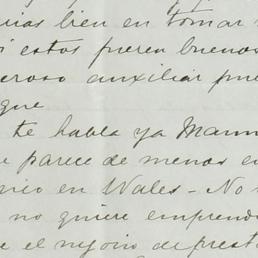 bien en tomar
si estos fueren buenos
auxiliar
que
te habla ya
parece de menos e
en Wales - No
no quiere emprend
e el de prest